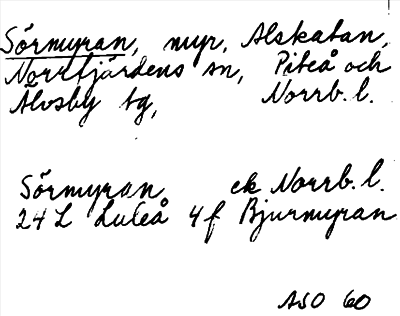 Sörmyran, myr, Alskatan,
Norrfjärdens sn, Piteå och
Älvsby tg, Norrb. l.
Sörmyran ek Norrb. l.
24 L Luleå 4f Bjurmyran
ASO 60